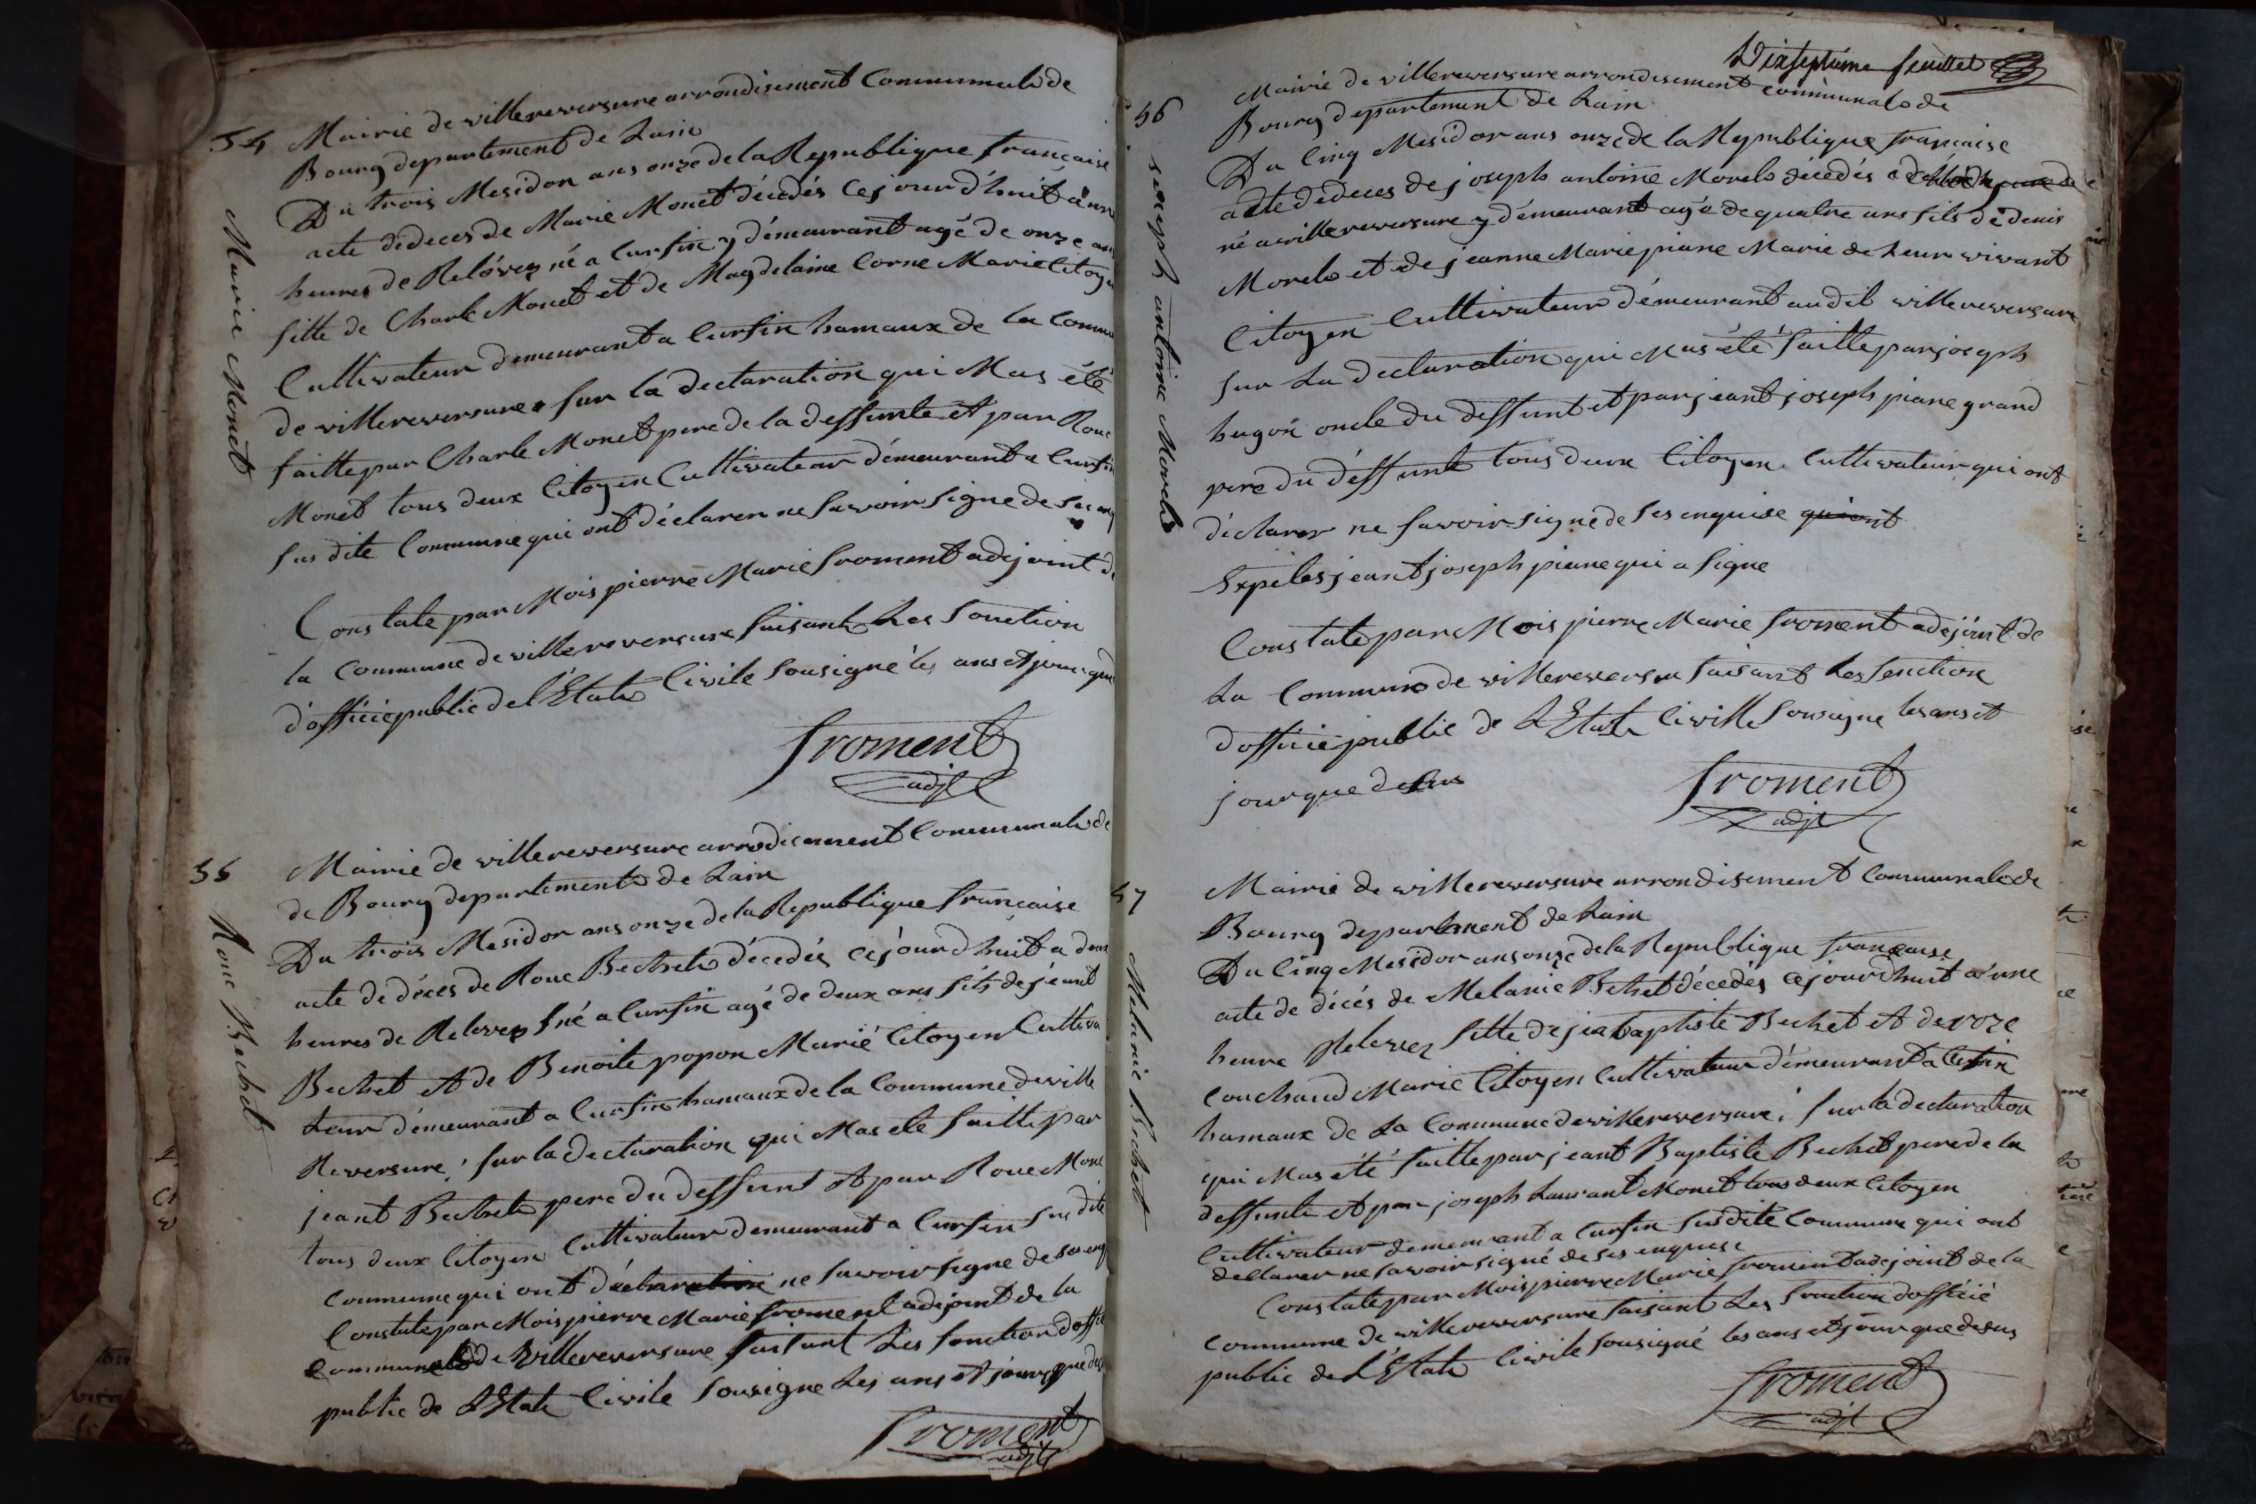 54
Marie Monet
Mairie de villereversure arrondisement Communale de
Bourg departement de Lain
Du trois Mesidor ans onze de la Republique francaise
acte dedeces de Marie Monet décedés cejourd'huit a une
heures de Relévez né a Cursin y démeurant agé de onze ans
fille de Charle Monet et de Magdelaine Corne Marié Citoyen
Cultivateur demeurant a Cursin hamaux de la Commune
de villereversure sur la declaration qui Mas été
faitte par Charle Monet pere de la deffunte et par Roue
Monet tous deux Citoyen Cultivateur démeurant a Cursin
sus dite Commune qui ont déclarer ne savoir signe de
Constate par Mois pierre Marie froment adejoint de
la Commune de villereversure faisant Les fonction
d'officie public de l'Etate Civile Sousigné les ans et jour que
froment
adjt
55
Roue Bechet
Mairie de villereversure arrodisement Communale de
de Bourg departemente de Lain
Du trois Mesidor ans onze de la Republique francaise
acte de déces de Roue Bechete décedés cejourd'huit a deux
heures de Relevez né a Cursin agé de deux ans fils de jeant
Bechet et de Benoite popon Marié Citoyen Cultiva
teur démeurant a Cursin hamaux de la Commune de ville
Reversure, sur la declaration qui Mas ete faitte par
jeant Bechete pere du deffunt et par Roue Monet
tous deux Citoyen Cultivateur demeurant a Cursin sus dite
Commune qui ont déclaration ne savoir signe de ses enq
Constate par Mois pierre Marie froment adejoint de la
Commune de Villereversure faisant Les fonction d'officie
public de L'Etate Civile Sousigne Les ans et jour que desus
froment
adjt
Dixseptième feuillet
56
joseph antoine Morele
Mairie de villereversure arrondisement communale de
Bourg departement de Lain
Du Cinq Mesidor ans onze de la Republique francaise
acte dedeces de joseph antoine Morele décedés
né a villereversure y démeurant agé de quatre ans fils de denis
Morele et de jeanne Marie piane Marie de Leur vivant
Citoyen Cultivateur démeurant audit villereversure
sur La declaration qui Mas été faitte par joseph
hugon oncle du deffunt et par jeant joseph piane grand
pere du deffunt tous deux Citoyen Cultivateur qui ont
déclarer ne savoir signé de ses enquise qui ont
Expiles jeant joseph piane qui a signe
Constate par Mois pierre Marie froment adejoint de
La Commune de villereversu faisant Les fonction
d'officie public de L'Etate Civille Sousigne les ans et
jour que desus
froment
adjt
57
Melanie Bechet
Mairie de villereversure arrondisement Communale de
Bourg departement de Lain
Du Cinq Mesidor ans onze de la Republique francaise
acte de décés de Melanie Bechet décedés cejourd'huit a une
heure Relevez fille de jea baptiste Bechet et de roze
Couchaud Marie Citoyen Cultivateur démeurant a Cursin
hamaux de La Commune de villereversure; sur la declaration
qui Mas été faitte par jeant Baptiste Bechet pere de la
deffunte et par joseph Laurant Monet tous deux Citoyen
Cultivateur demeurant a Cursin susdite Commune qui ont
declarer ne savoir signé de ses enquise
Constate par Mois pierre Marie froment adejoint de la
Commune de villereversure faisant Les fonction d'officié
public de L'Etate Civile Sousigné les ans et jour que desus
froment
adjt